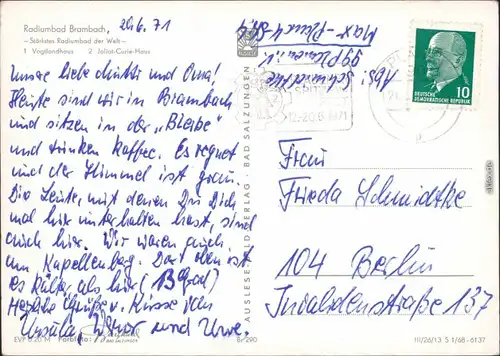 Radiumbad Brambach,
— Stärkstes Radiumbad der Welt —
1 Vogtlandhaus 2 Joliot-Curie-Haus
20.6.71
Unsere liebe Mutti und Oma!
Heute sind wir in Brambach
und sitzen in der „Bleibe"
und trinken Kaffee. Es regnet
und der Himmel ist grau.
Die Leute, mit denen Du Dich
mal hier unterhalten hast, sind
auch hier. Wir waren auch
am Kapellenberg. Dort oben ist
es kälter als hier (13 Grad)
Herzliche Grüße u. Küsse von
Ursula, und Uwe.
EVP 0,20 M
BAD SALZUNGEN
Br 290
AUSLESE-BILD-VERLAG · BAD SALZUNGEN
Abs: Schmidtke
99 Plauen i. V.
Max-Planck-Str.
12.-20.6.1971
DEUTSCHE
DEMOKRATISCHE REPUBLIK
10
Frau
Frieda Schmidtke
104 Berlin
Invalidenstraße 137
III/26/13 S 1/68-6137